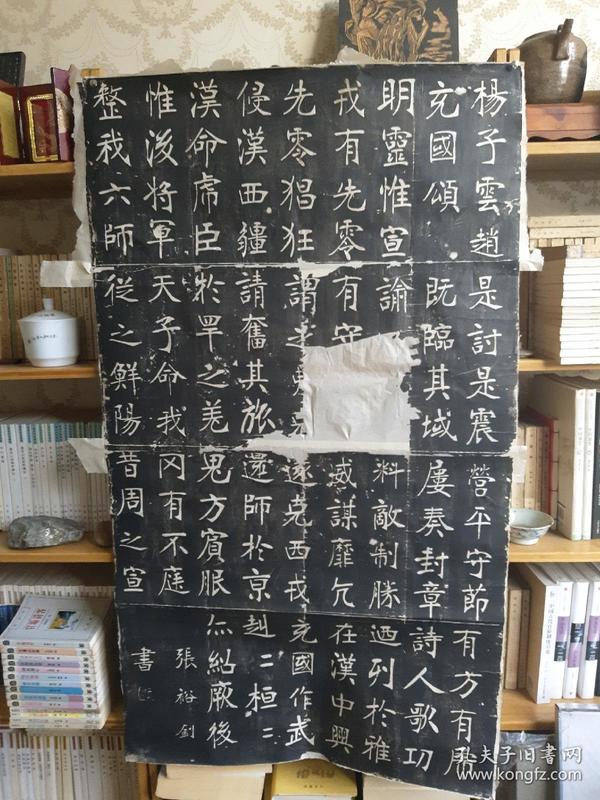 楊子雲趙
充國頌
明靈惟宣
戎有先零
先零猖狂
侵漢西疆
漢命虎臣
惟後將軍
整我六師
是討是震
既臨其域
諭
有守
謂之
請奮其旅
於罕之羌
天子命我
從之鮮陽
營平守節
屢奏封章
料敵制勝
威謀靡亢
遂克西戎
還師於京
鬼方賓服
罔有不庭
昔周之宣
有方有虎
詩人歌功
迺列於雅
在漢中興
充國作武
赳二桓二
亦紹厥後
張裕釗
書
孔夫子旧书网
www.kongfz.com